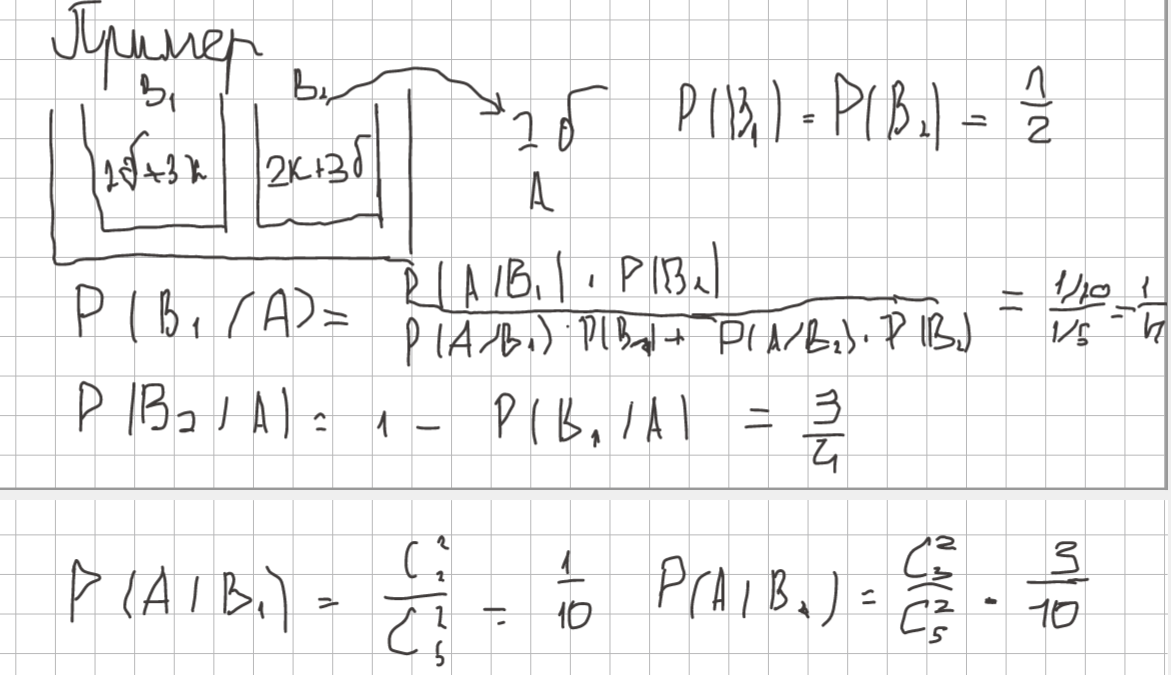 Пример
B₁ B₂ 2 б P(B₁) = P(B₂) = 1/2
2б+3к 2к+3б A
P(B₁/A) = (P(A/B₁) · P(B₁)) / (P(A/B₁) · P(B₁) + P(A/B₂) · P(B₂)) = (1/10)/(1/5) = 1/4
P(B₂/A) = 1 - P(B₁/A) = 3/4
P(A/B₁) = C₂²/C₅² = 1/10 P(A/B₂) = C₃²/C₅² = 3/10